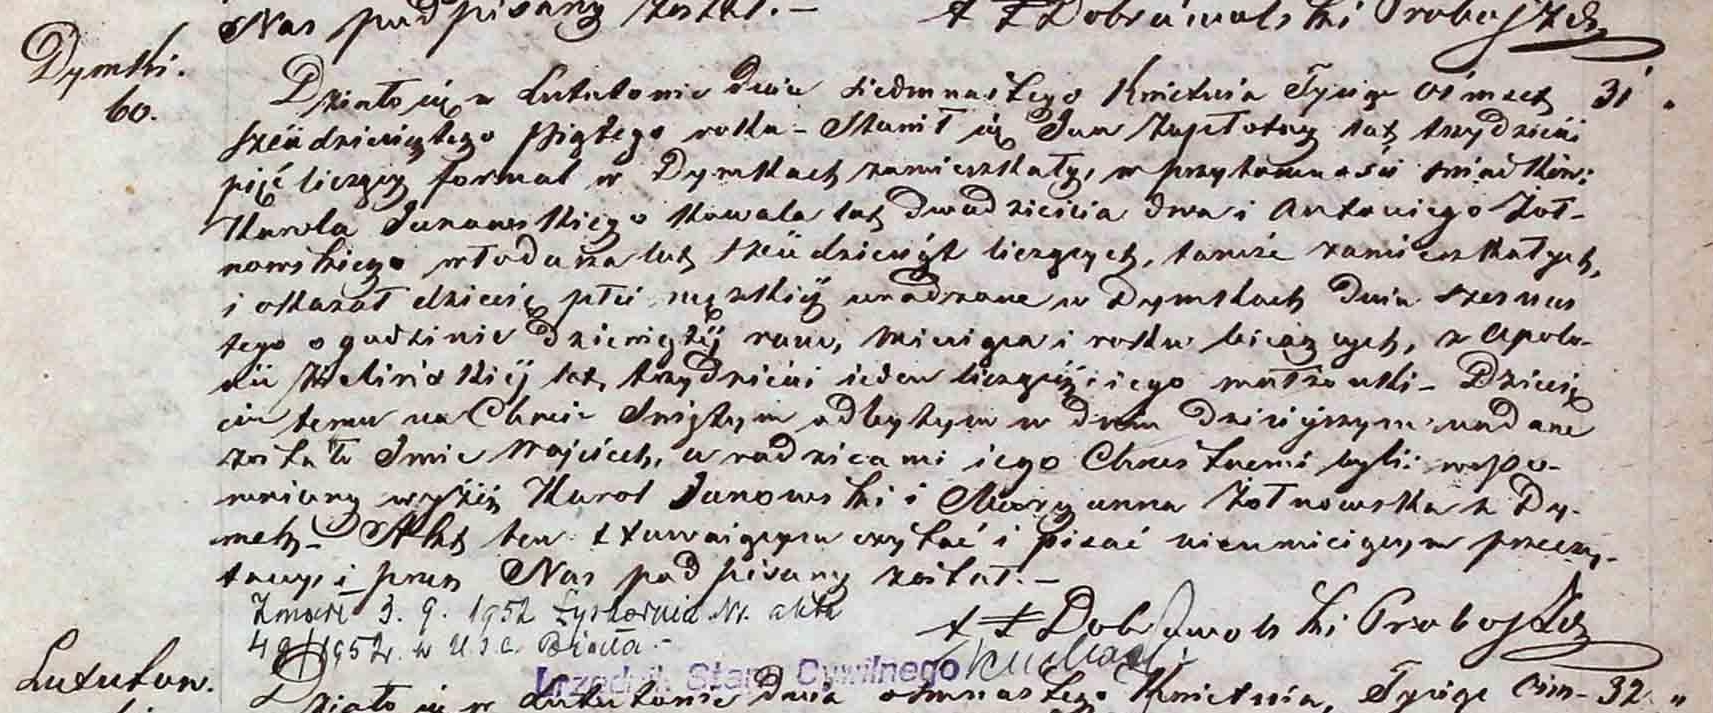 Nas podpisany został. — X F Dobrowolski Proboszcz
Dymki.
60.
Działo się w Lututowie dnia siedmnastego Kwietnia Tysiąc ośmset 31.
sześćdziesiątego piątego roku – Stawił się Jan Zapłotny lat trzydzieści
pięć liczący fornal w Dymkach zamieszkały, w przytomności świadków:
Karola Janowskiego Kowala lat dwadzieścia dwa i Antoniego Żoł-
nowskiego włodarza lat sześćdziesiąt liczących, tamże zamieszkałych,
i okazał dziecię płci męzkiéj urodzone w Dymkach dnia szesnas
tego o godzinie dziewiątéj rano, miesiąca i roku bieżących, z Apolo-
nii lat trzydzieści ieden liczącéj iego małżonki – Dziecię
ciu temu na Chrzcie Świętym odbytym w dniu dzisiéjszym nadane
zostało Imie Wojciech, a rodzicami iego Chrzestnemi byli: wspo-
mniany wyżéj Karol Janowski i Maryanna Żołnowska z Dy-
mek – Akt ten stawaiącym czytać i pisać nieumieiącym przeczy-
tany, i przez Nas podpisany został. —
Zmarł 3. 9. 1952 Łyskornia Nr. aktu
49/1952 r. w U.S.C. Biała. –
X F Dobrowolski Proboszcz
Urzędnik Stanu Cywilnego
Lututow.
Działo się w Lututowie dnia ośmnastego Kwietnia, Tysiąc ośm- 32 "